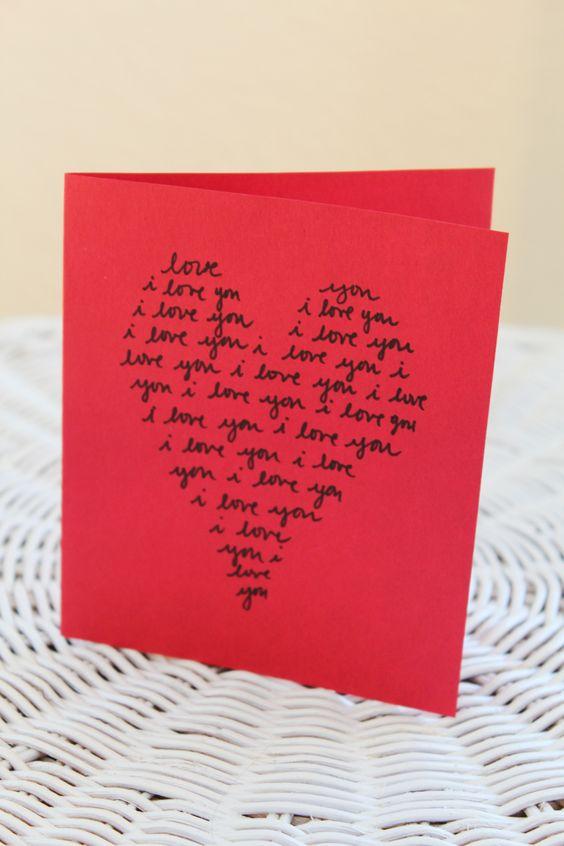 love you
i love you i love you
i love you i love you
i love you i love you i
love you i love you i love
you i love you i love you
i love you i love you
i love you i love
you i love you
i love you
i love
you i
love
you